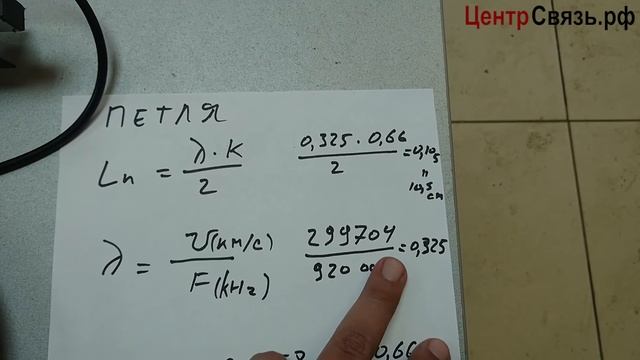 ЦентрСвязь.рф
ПЕТЛЯ
Lп = λ·K / 2
0,325·0,66 / 2 = 0,105
10,5 см
λ = V(км/с) / F(kHz)
299704 / 920 00 = 0,325
0,66